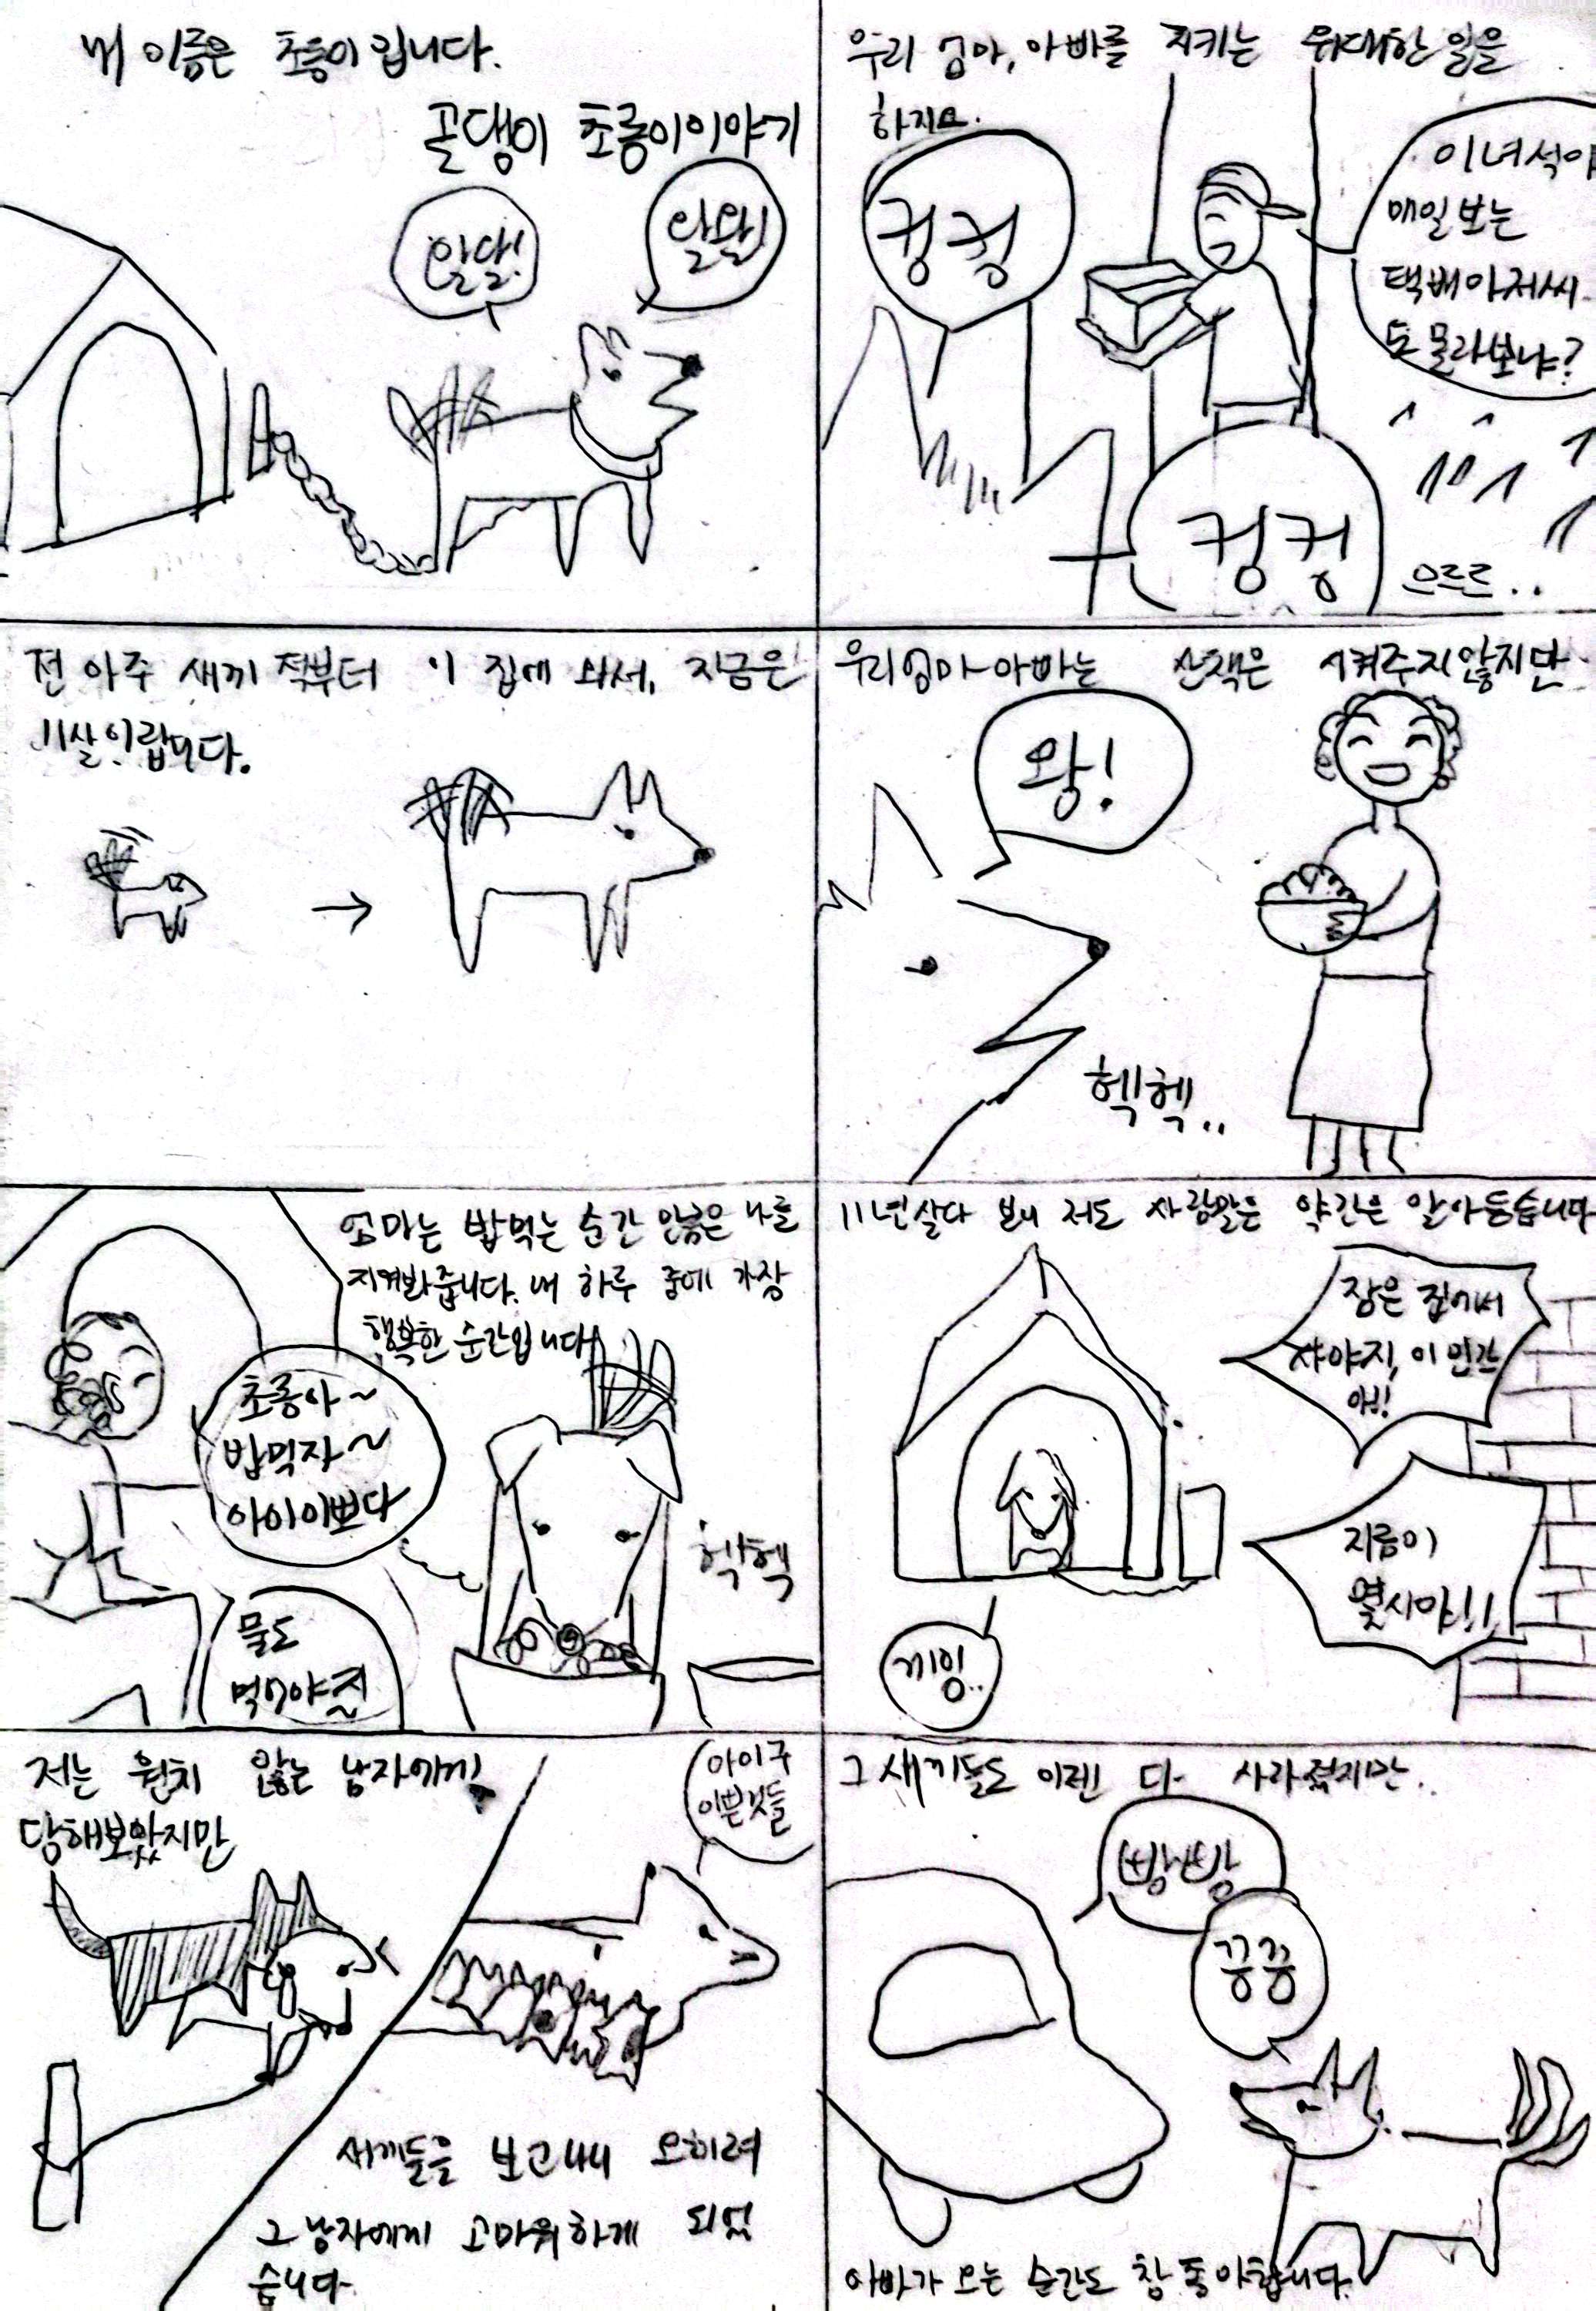 내 이름은 초롱이입니다.
골댕이 초롱이이야기
왈왈!
왈왈!
우리 엄마, 아빠를 지키는 위대한 일을
하지요.
컹컹
이녀석아
매일 보는
택배아저씨
도 몰라보냐?
컹컹
으르르..
전 아주 새끼 적부터 이 집에 와서, 지금은
11살이랍니다.
우리엄마아빠는 산책은 시켜주지않지만
왕!
헥헥..
엄마는 밥먹는 순간 만큼은 나를
지켜봐줍니다. 내 하루 중에 가장
행복한 순간입니다
초롱아~
밥먹자~
아이이쁘다
물도
먹어야지
헥헥
11년살다 보니 저도 사람말은 약간은 알아듣습니다
잠은 집에서
자야지, 이 인간
아!!
지금이
몇시야!!
끼잉..
저는 원치 않는 남자에게
당해보았지만
아이구
이쁜것들
새끼들을 보고나니 오히려
그 남자에게 고마워하게 되었
습니다.
그 새끼들도 이젠 다 사라졌지만..
빵빵
끙끙
아빠가 오는 순간도 참 좋아합니다.